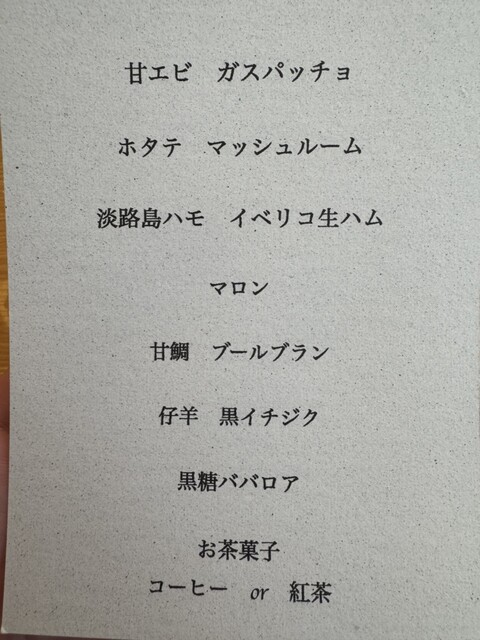 甘エビ　ガスパッチョ
ホタテ　マッシュルーム
淡路島ハモ　イベリコ生ハム
マロン
甘鯛　ブールブラン
仔羊　黒イチジク
黒糖ババロア
お茶菓子
コーヒー　or　紅茶